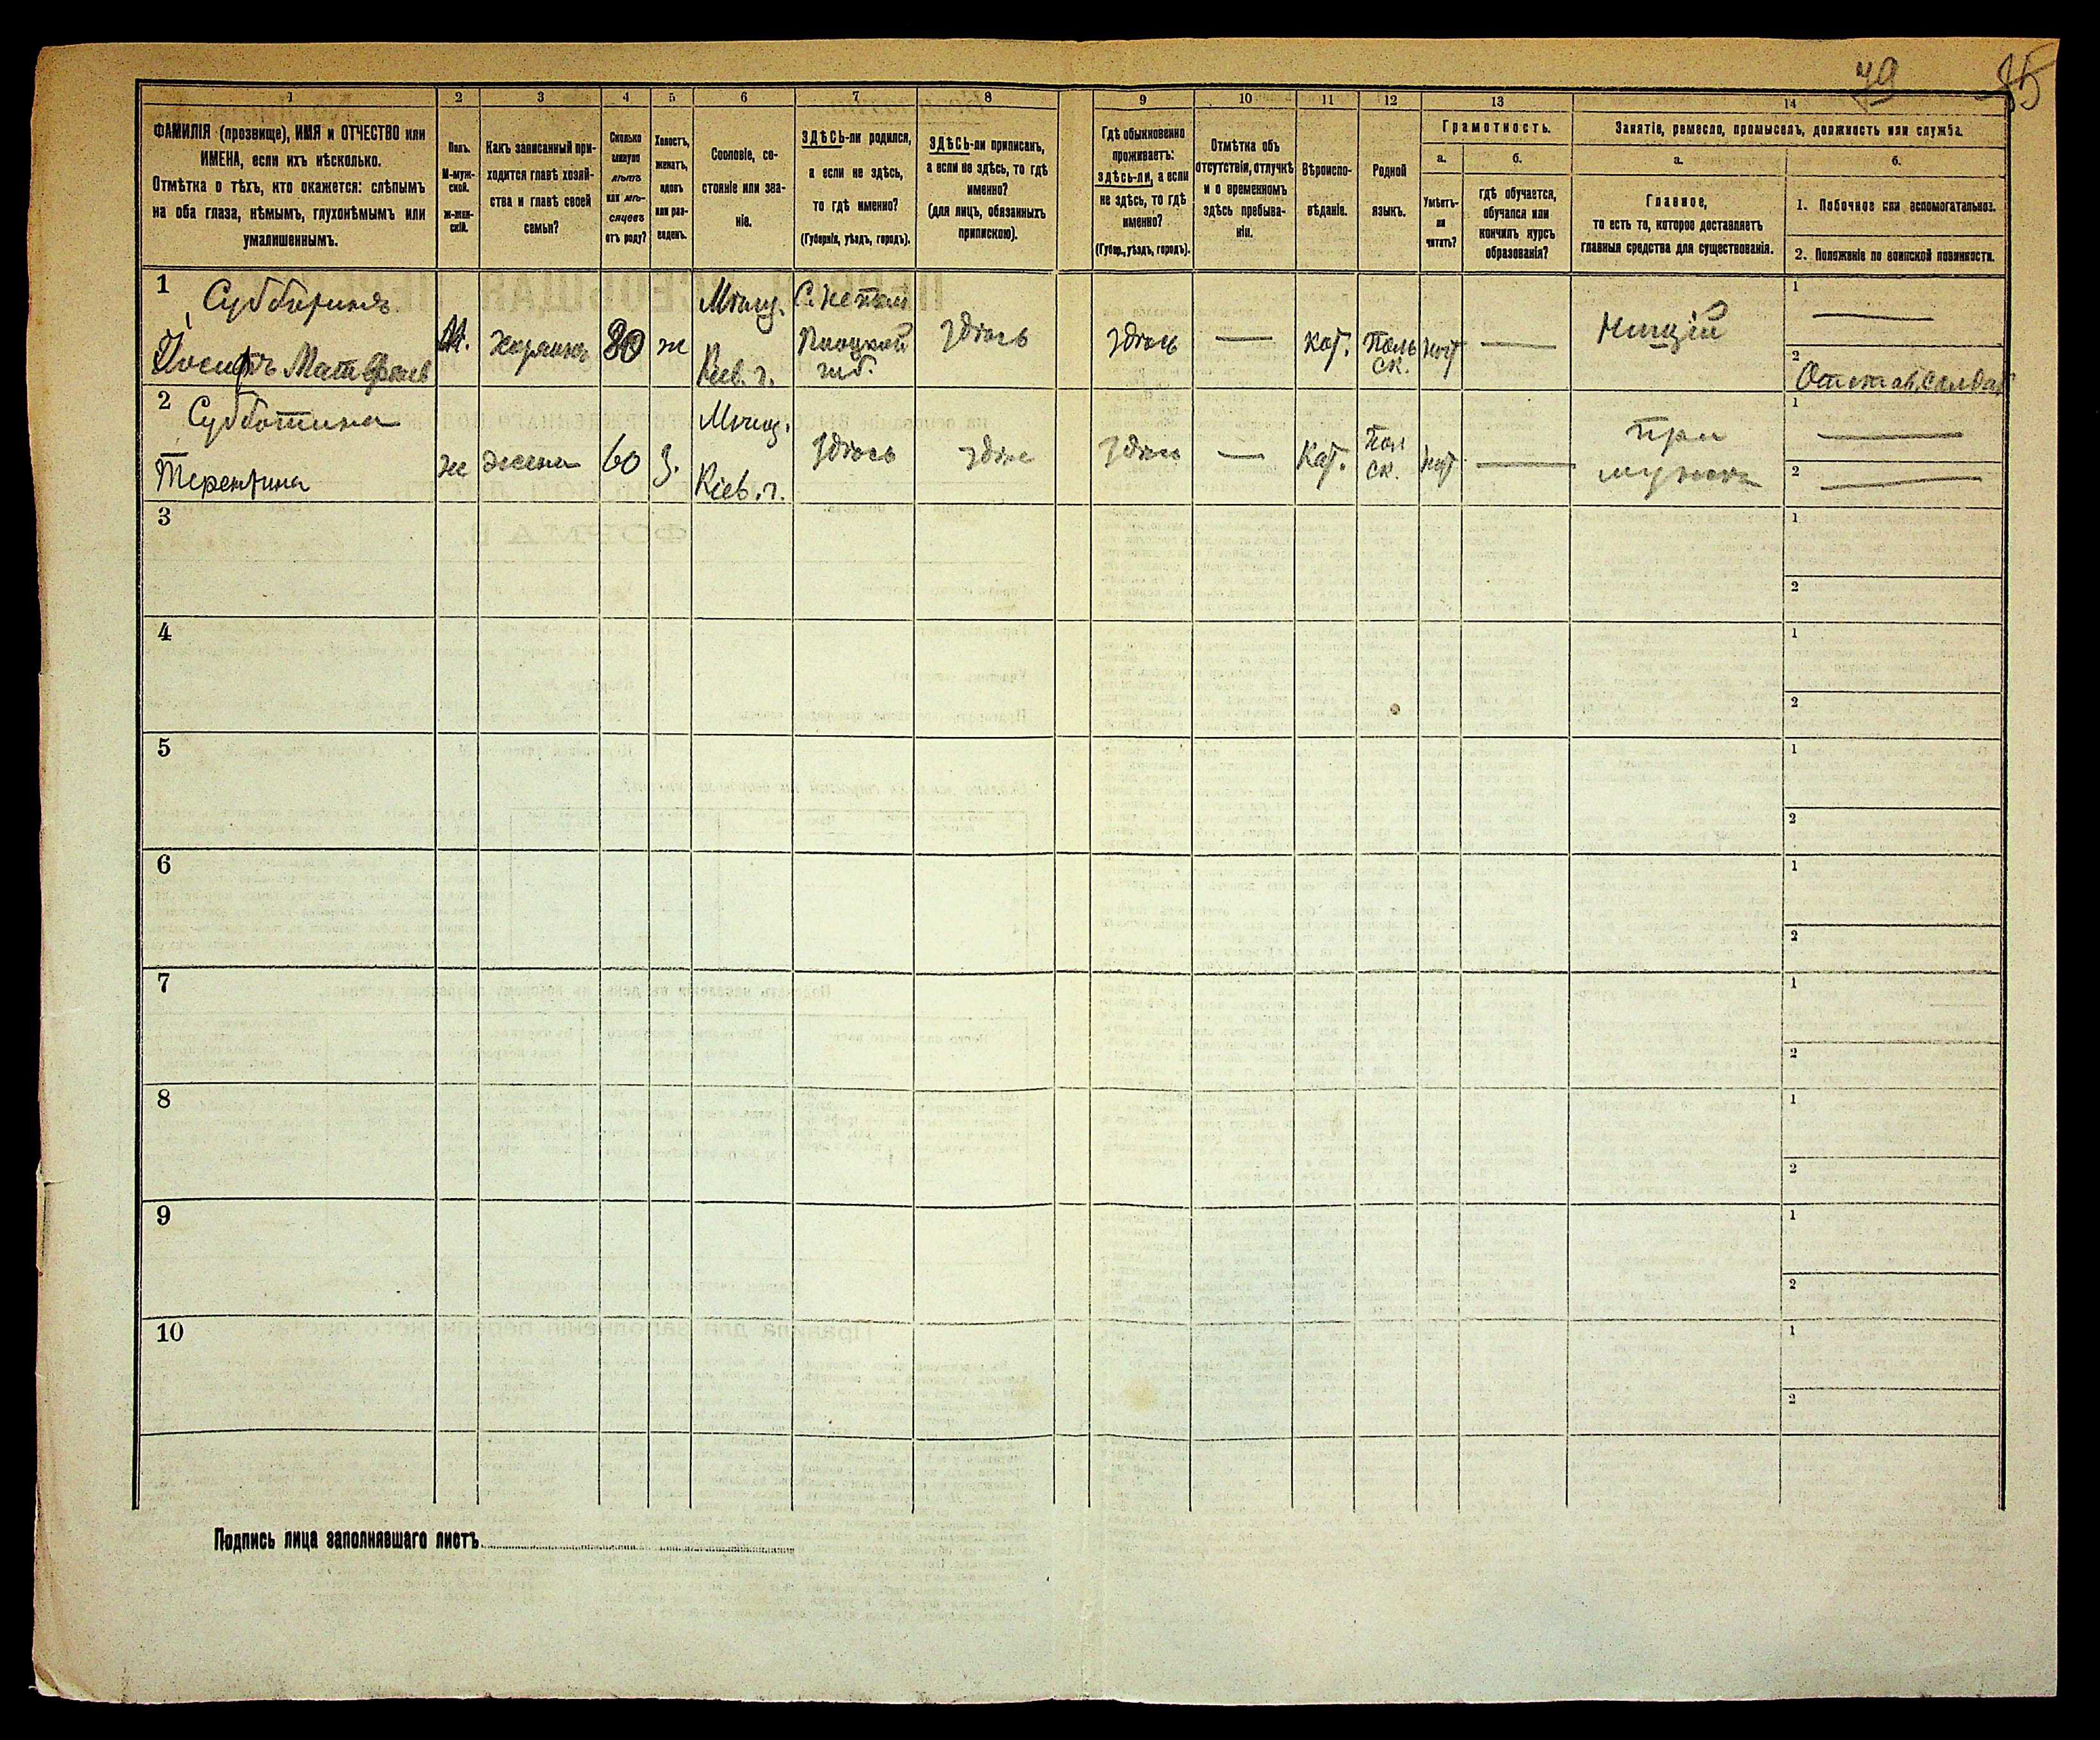 79 85
1 2 3 4 5 6 7 8 9 10 11 12 13 14
ФАМИЛІЯ (прозвище), ИМЯ и ОТЧЕСТВО или
ИМЕНА, если ихъ нѣсколько.
Отмѣтка о тѣхъ, кто окажется: слѣпымъ
на оба глаза, нѣмымъ, глухонѣмымъ или
умалишеннымъ.
Полъ.
М-муж-
ской.
Ж-жен-
скій.
Какъ записанный при-
ходится главѣ хозяй-
ства и главѣ своей
семьи?
Сколько
минуло
лѣтъ
или мѣ-
сяцевъ
отъ роду?
Холостъ,
женатъ,
вдовъ
или раз-
веденъ.
Сословіе, со-
стояніе или зва-
ніе.
ЗДѢСЬ-ли родился,
а если не здѣсь,
то гдѣ именно?
(Губернія, уѣздъ, городъ).
ЗДѢСЬ-ли приписанъ,
а если не здѣсь, то гдѣ
именно?
(для лицъ, обязанныхъ
припискою).
Гдѣ обыкновенно
проживаетъ:
здѣсь-ли, а если
не здѣсь, то гдѣ
именно?
(Губер., уѣздъ, городъ).
Отмѣтка объ
отсутствіи, отлучкѣ
и о временномъ
здѣсь пребыва-
ніи.
Вѣроиспо-
вѣданіе.
Родной
языкъ.
Грамотность.
а.
Умѣетъ-
ли
читать?
б.
гдѣ обучается,
обучался или
кончилъ курсъ
образованія?
Занятіе, ремесло, промыселъ, должность или служба.
а.
Главное,
то есть то, которое доставляетъ
главныя средства для существованія.
б.
1. Побочное или вспомогательное.
2. Положеніе по воинской повинности.
1
Субботинъ
Іосифъ Матвѣевъ
М.
хозяинъ
80
ж
Мѣщ.
Кіев. г.
Плоцкой
губ.
здѣсь
здѣсь
—
кат.
поль
ск.
нѣт
—
Нищій
1 —
2 Отстав. солдат
2
Субботина
Терентина
ж
жена
60
з.
Мѣщ.
Кіев. г.
здѣсь
здѣс
здѣсь
—
кат.
пол
ск.
нѣт
—
при
мужѣ
1 —
2 —
3 1
2
4 1
2
5 1
2
6 1
2
7 1
2
8 1
2
9 1
2
10 1
2
Подпись лица заполнявшаго листъ